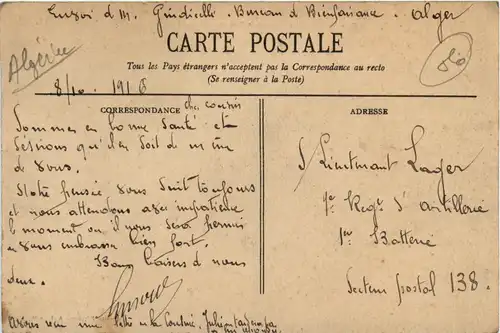 Envoi de M. Guidicelli. Bureau de Bienfaisance. Alger
CARTE POSTALE
Tous les Pays étrangers n'acceptent pas la Correspondance au recto
(Se renseigner à la Poste)
Algérie
8/10. 1916
CORRESPONDANCE
cher cousin
Sommes en bonne santé et
désirons qu'il en soit de même
de vous.
Notre pensée vous suit toujours
et nous attendons avec impatience
le moment où il nous sera permis
de vous embrasser bien fort.
Bons baisers de nous
deux.
Avons reçu une
ADRESSE
S/Lieutenant Lager
Regt d'artillerie
1er Batterie
Secteur postal 138.